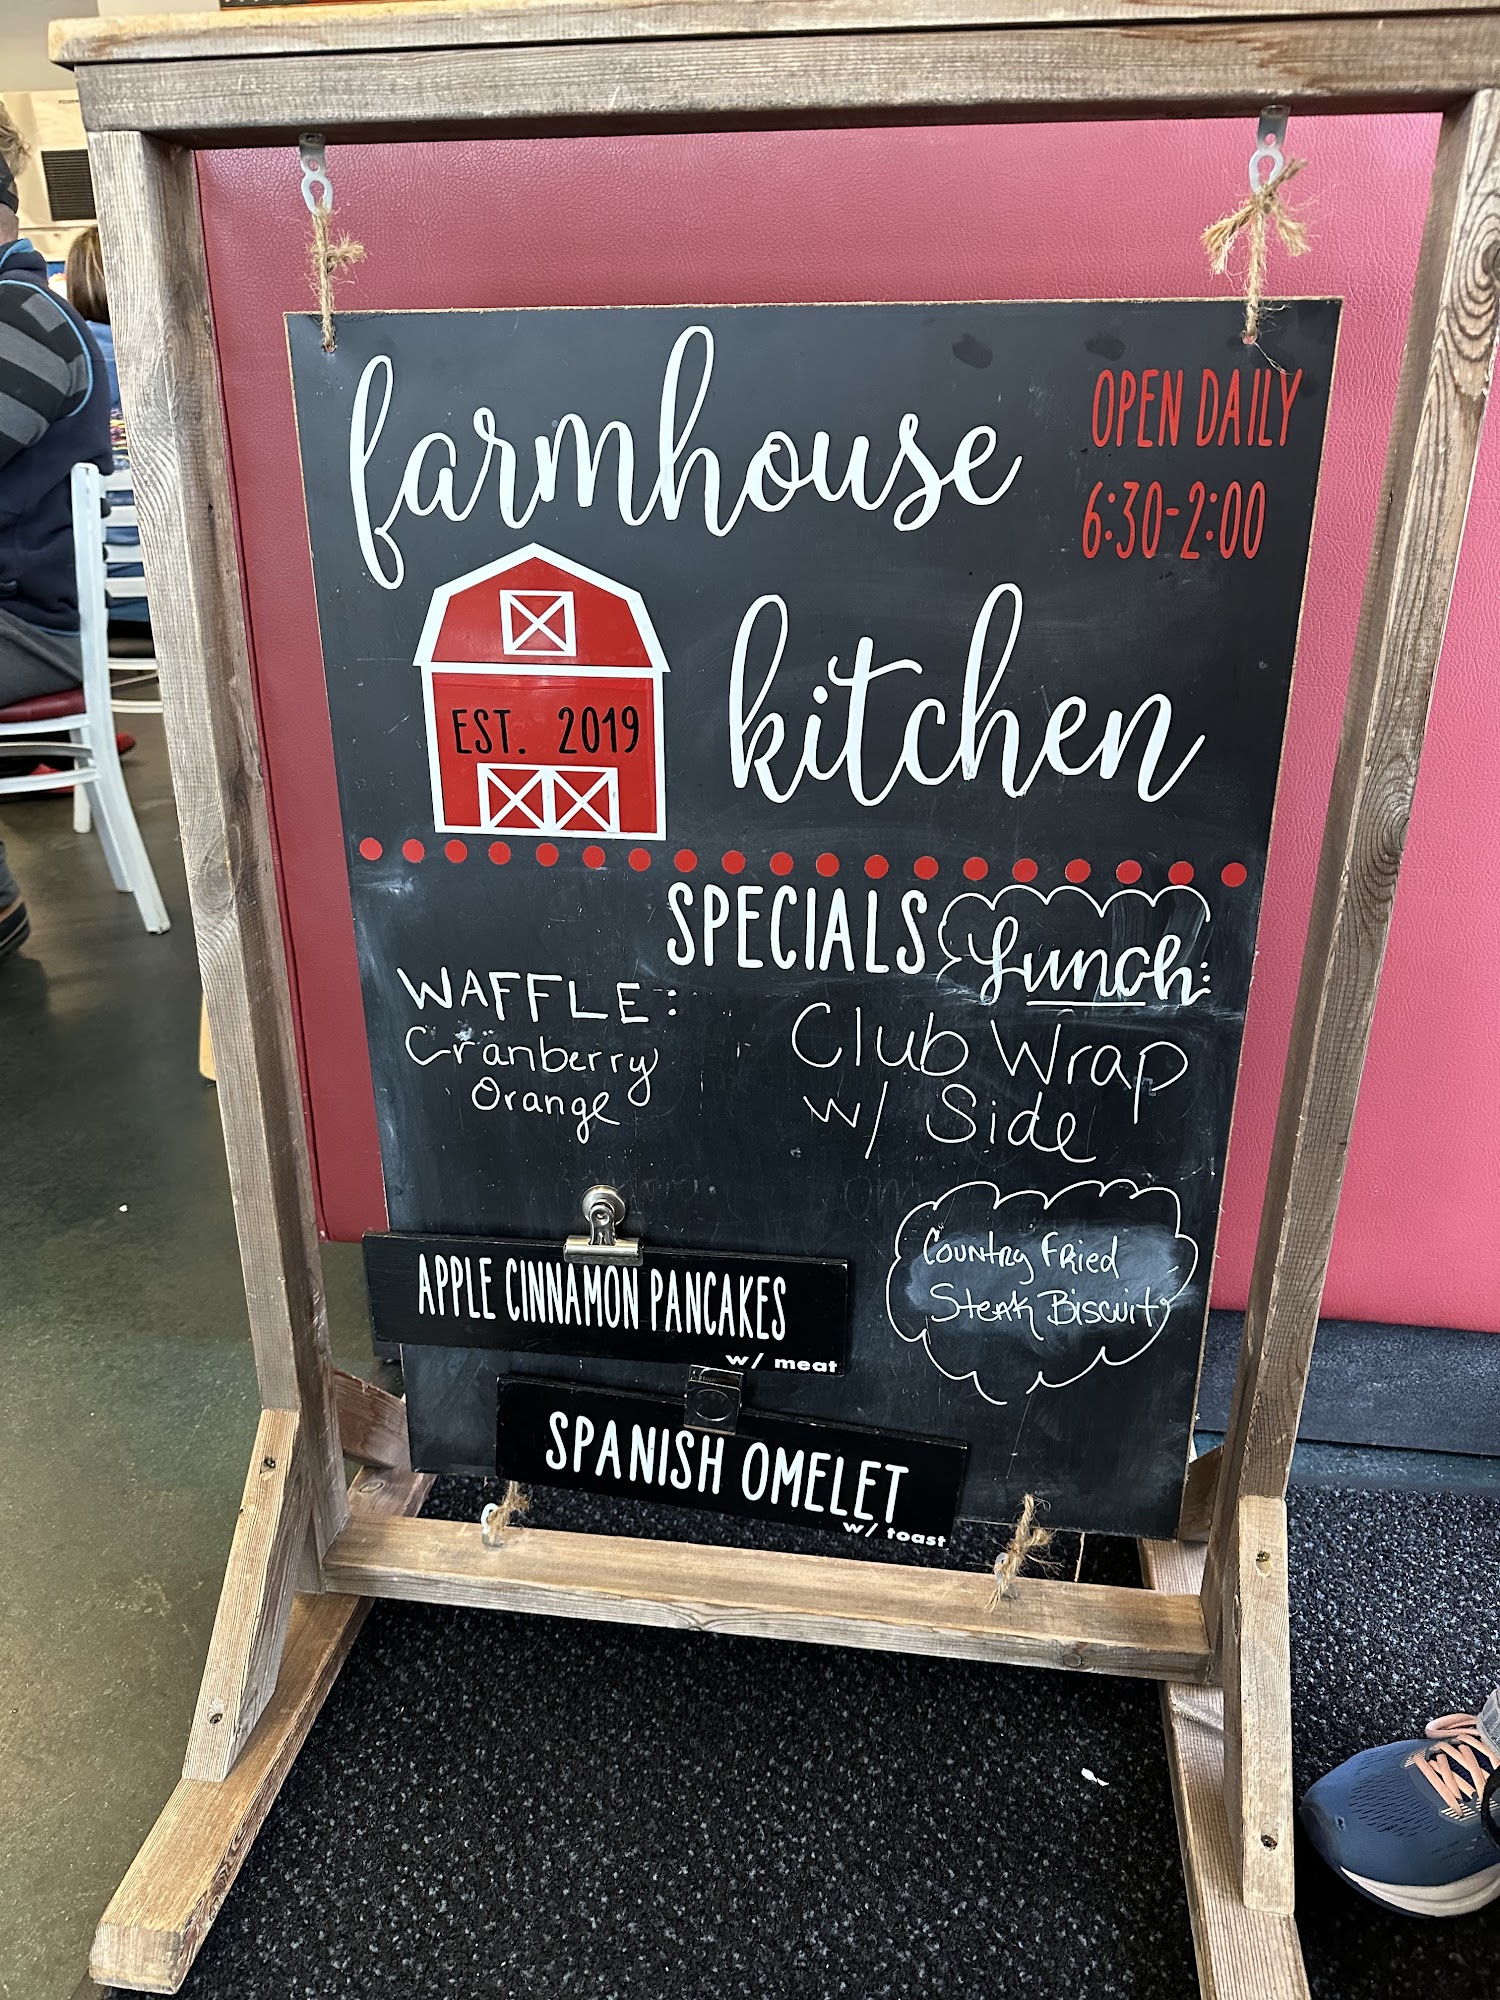 farmhouse
kitchen
OPEN DAILY
6:30-2:00
EST. 2019
SPECIALS
WAFFLE:
Cranberry
Orange
Lunch:
Club Wrap
w/ Side
Country Fried
Steak Biscuit
APPLE CINNAMON PANCAKES
w/ meat
SPANISH OMELET
w/ toast